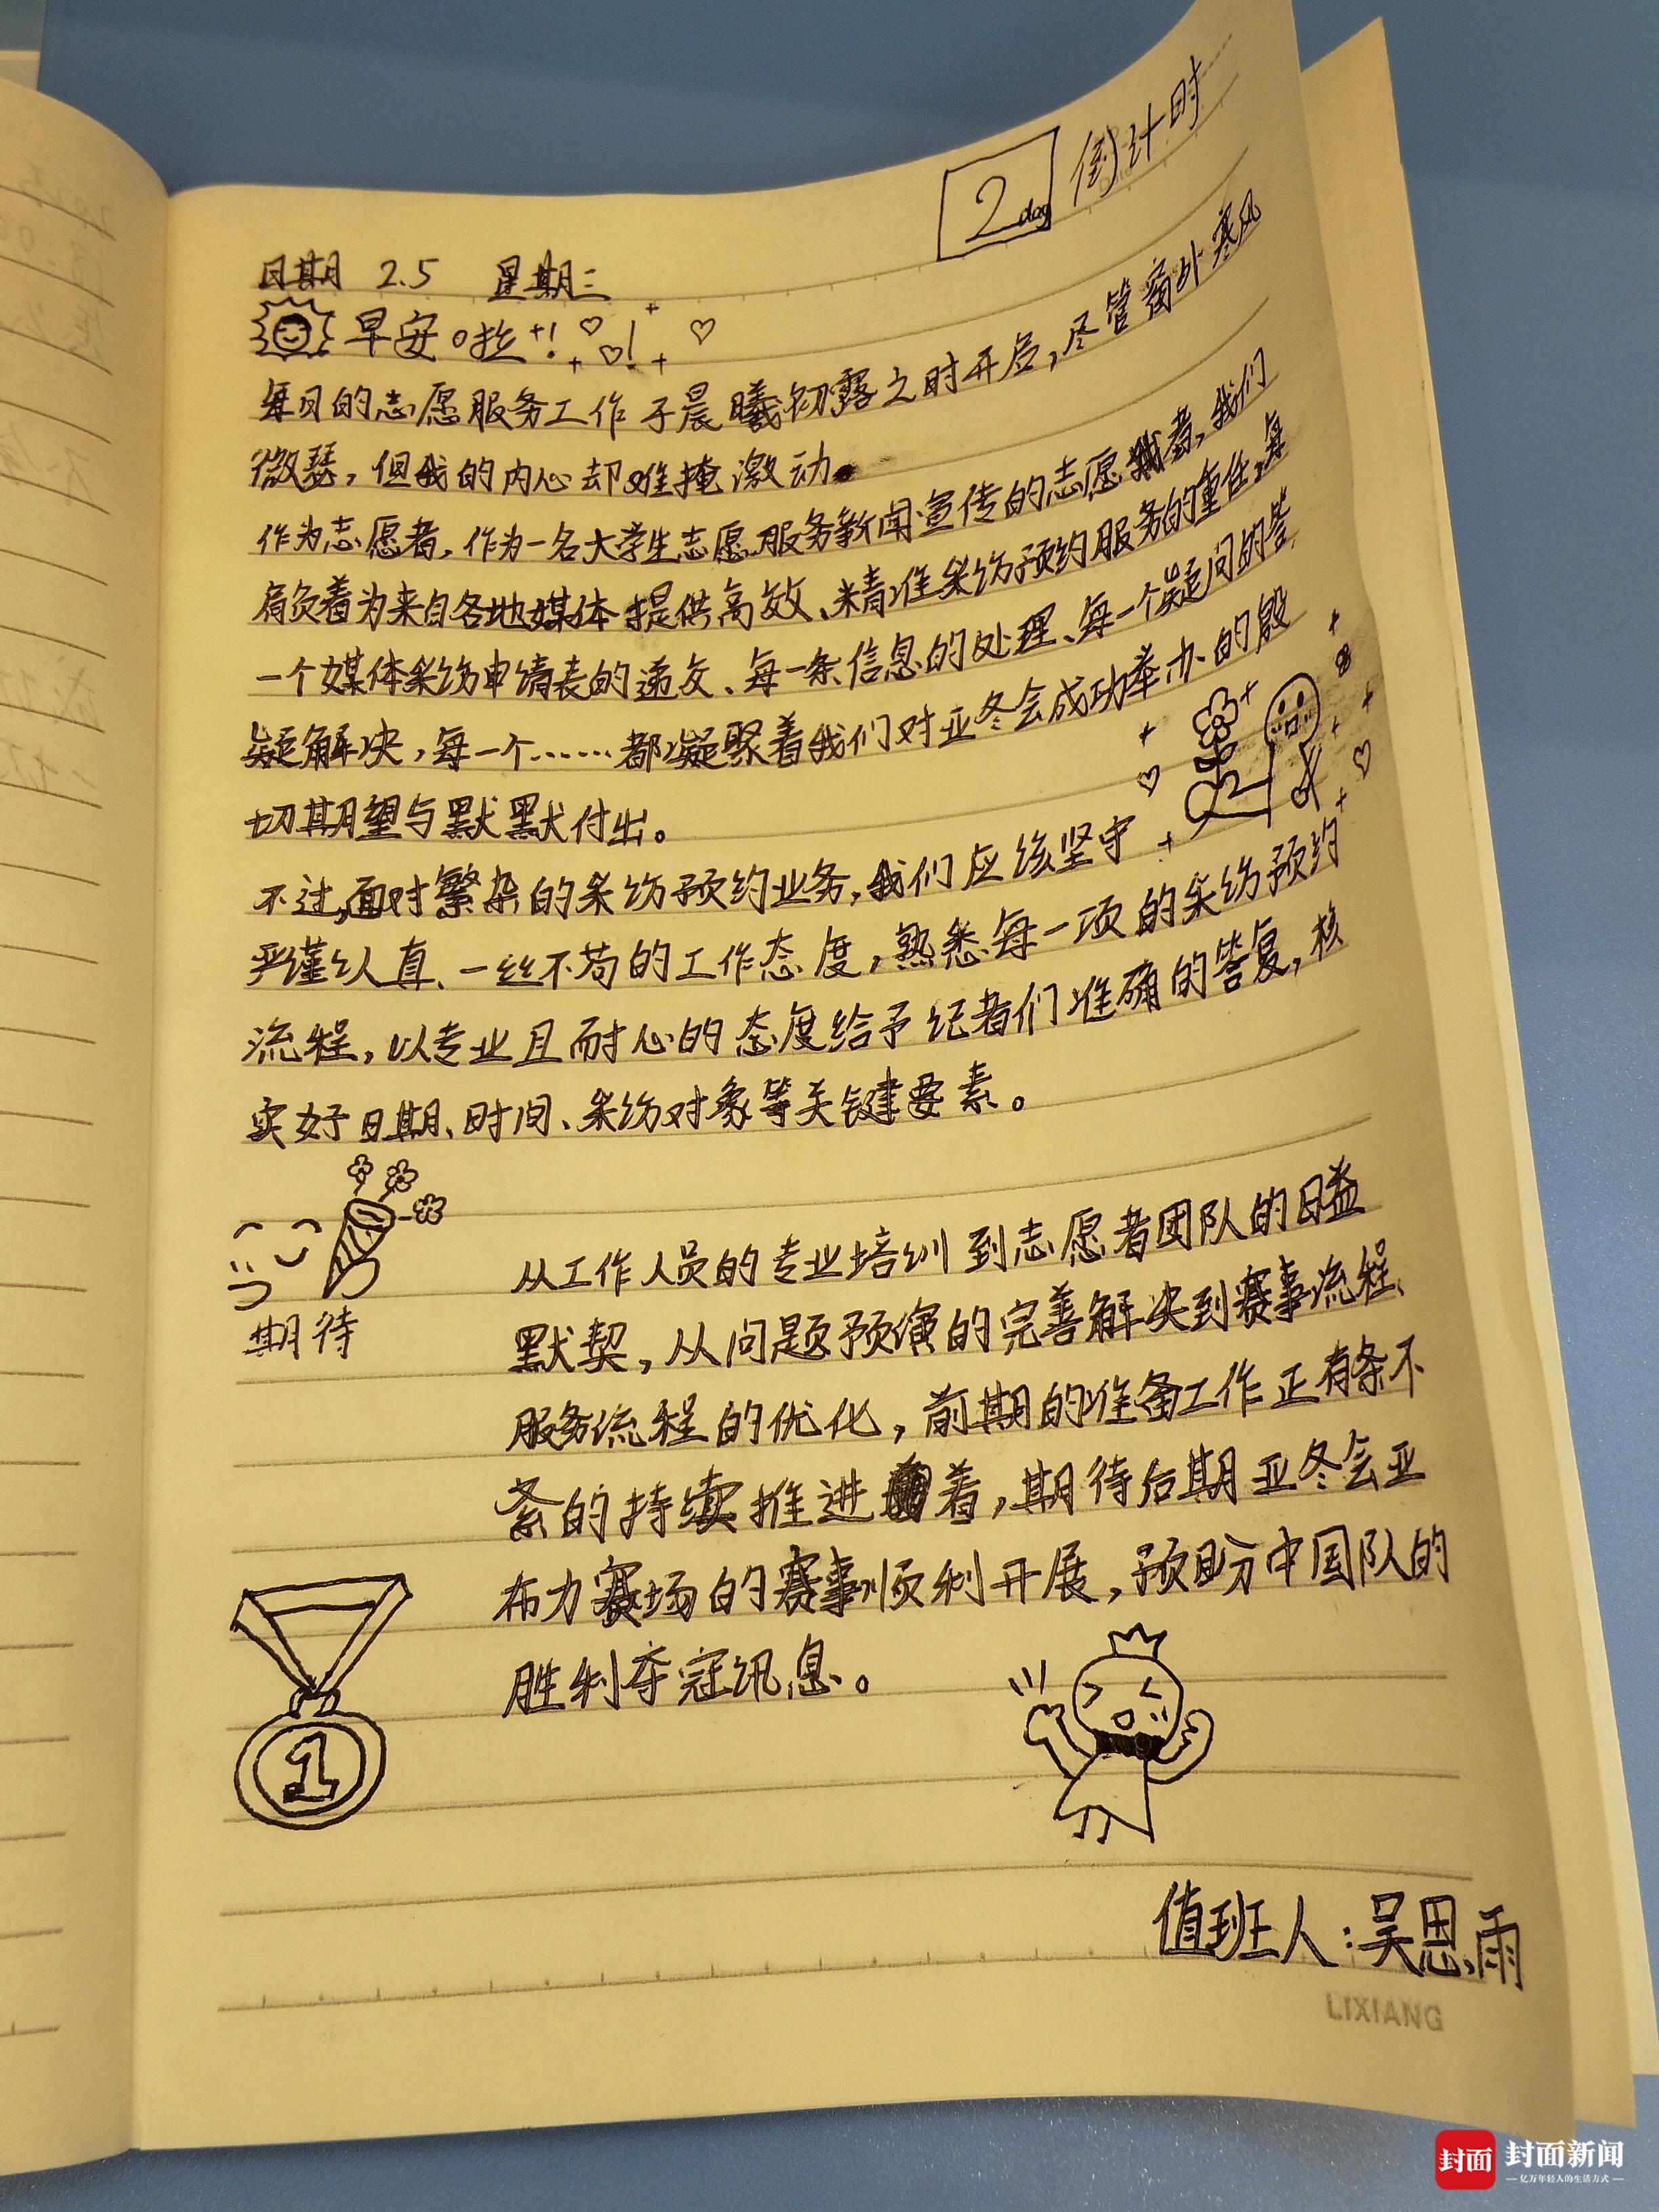 2 day 倒计时
日期 2.5 星期三
早安啦!!
每日的志愿服务工作于晨曦初露之时开启,尽管窗外寒风
微瑟,但我的内心却难掩激动。
作为志愿者,作为一名大学生志愿服务新闻宣传的志愿者,我们
肩负着为来自各地媒体提供高效、精准采访预约服务的重任,每
一个媒体采访申请表的递交、每一条信息的处理、每一个疑问的答
疑解决,每一个……都凝聚着我们对亚冬会成功举办的殷
切期望与默默付出。
不过,面对繁杂的采访预约业务,我们应该坚守
严谨认真、一丝不苟的工作态度,熟悉每一项的采访预约
流程,以专业且耐心的态度给予记者们准确的答复,核
实好日期、时间、采访对象等关键要素。
期待
从工作人员的专业培训到志愿者团队的日益
默契,从问题预演的完善解决到赛事流程、
服务流程的优化,前期的准备工作正有条不
紊的持续推进着,期待后期亚冬会亚
布力赛场的赛事顺利开展,预盼中国队的
胜利夺冠讯息。
1
值班人:吴恩雨
LIXIANG
封面 封面新闻
亿万年轻人的生活方式